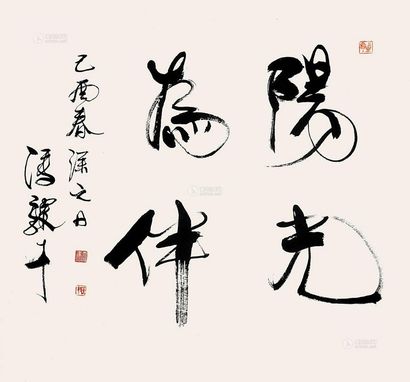 陽光
為伴
己酉春深之日